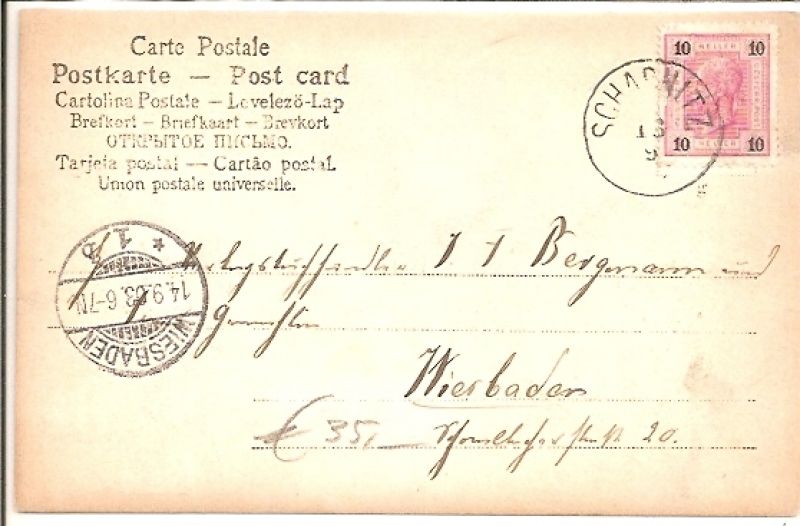 Carte Postale
Postkarte — Post card
Cartolina Postale — Levelező-Lap
Brefkort — Briefkaart — Brevkort
ОТКРЫТОЕ ПИСЬМО.
Tarjeta postal — Cartão postal.
Union postale universelle.
10 HELLER 10
10 HELLER 10
SCHARNITZ
13
9
* 1 b
14.9.03. 6-7N
WIESBADEN
Verlagsbuchhändler J F Bergmann und
Wiesbaden
€ 35,— 20.